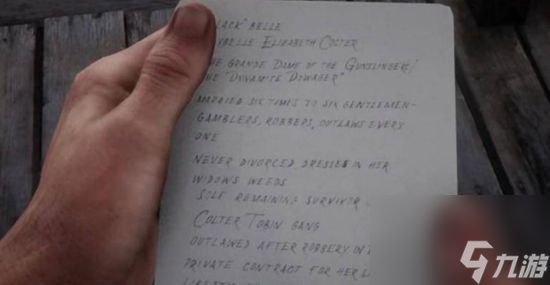 LACK" BELLE
YBELLE ELIZABETH COLTER
HE GRANDE DAME OF THE GUNSLINGERS/
HE "DYNAMITE DOWAGER"
MARRIED SIX TIMES TO SIX GENTLEMEN-
GAMBLERS, ROBBERS, OUTLAWS EVERY
ONE
NEVER DIVORCED DRESSES IN HER
WIDOWS WEEDS
SOLE REMAINING SURVIVOR
COLTER TOBIN GANG
OUTLAWED AFTER ROBBERY IN
PRIVATE CONTRACT FOR HER
九游